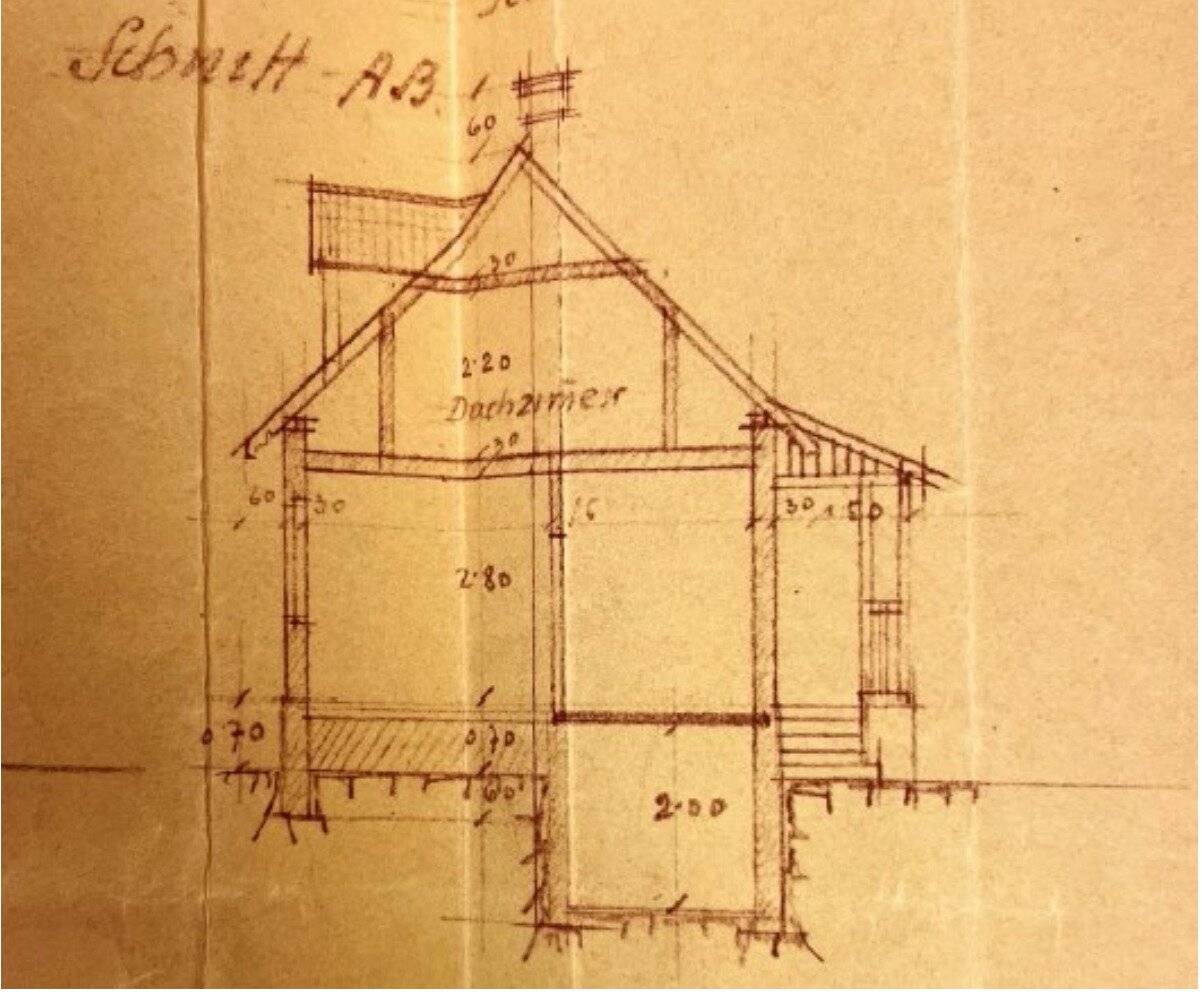 Schnitt - AB.
60
30
2.20
Dachzimmer
30
60 30 16 30 1.50
2.80
0.70 0.70
60
2.00